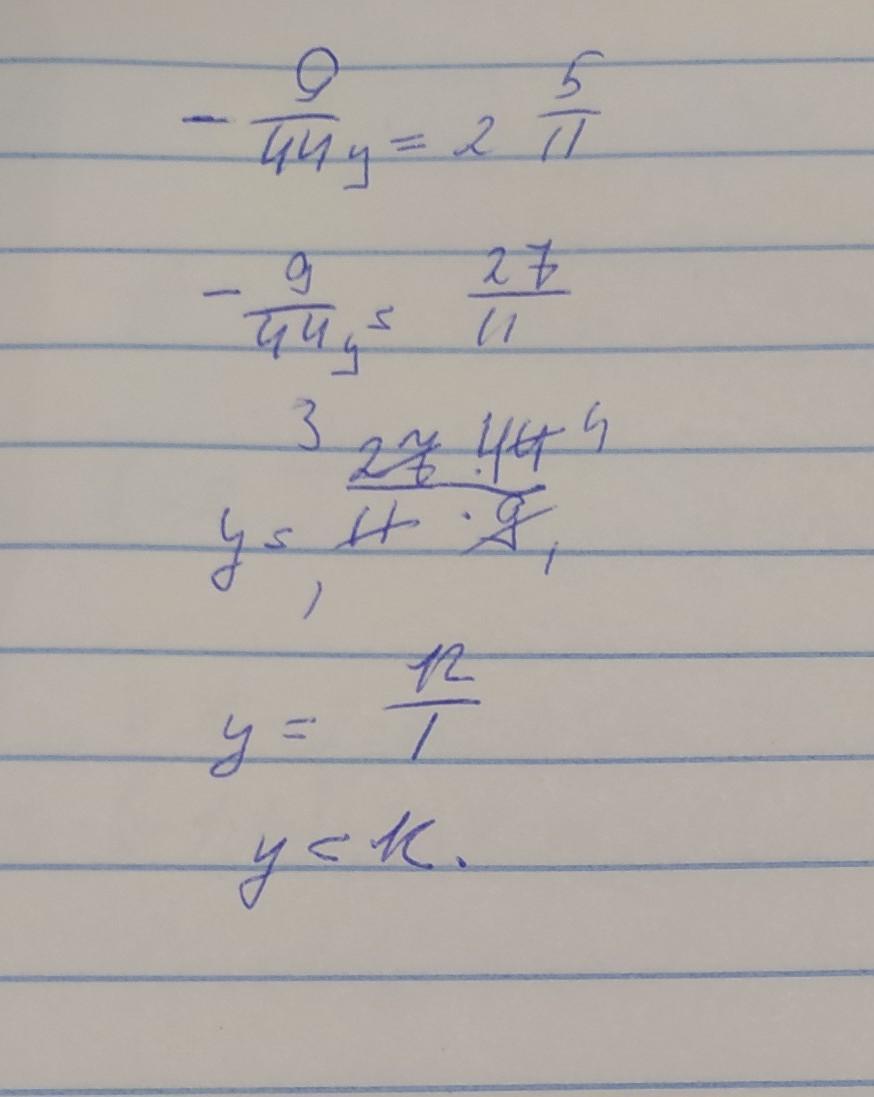 - 9/44 y = 2 5/11
- 9/44 y = 27/11
y = 3 27 · 44 4 / 1 11 · 9 1
y = 12/1
y = 12.